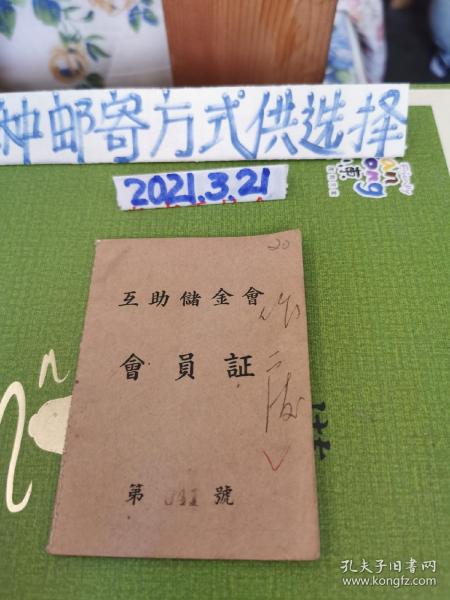 种邮寄方式供选择
2021.3.21
20
互助儲金會
會員証
作廢
第 041 號
孔夫子旧书网
www.kongfz.com